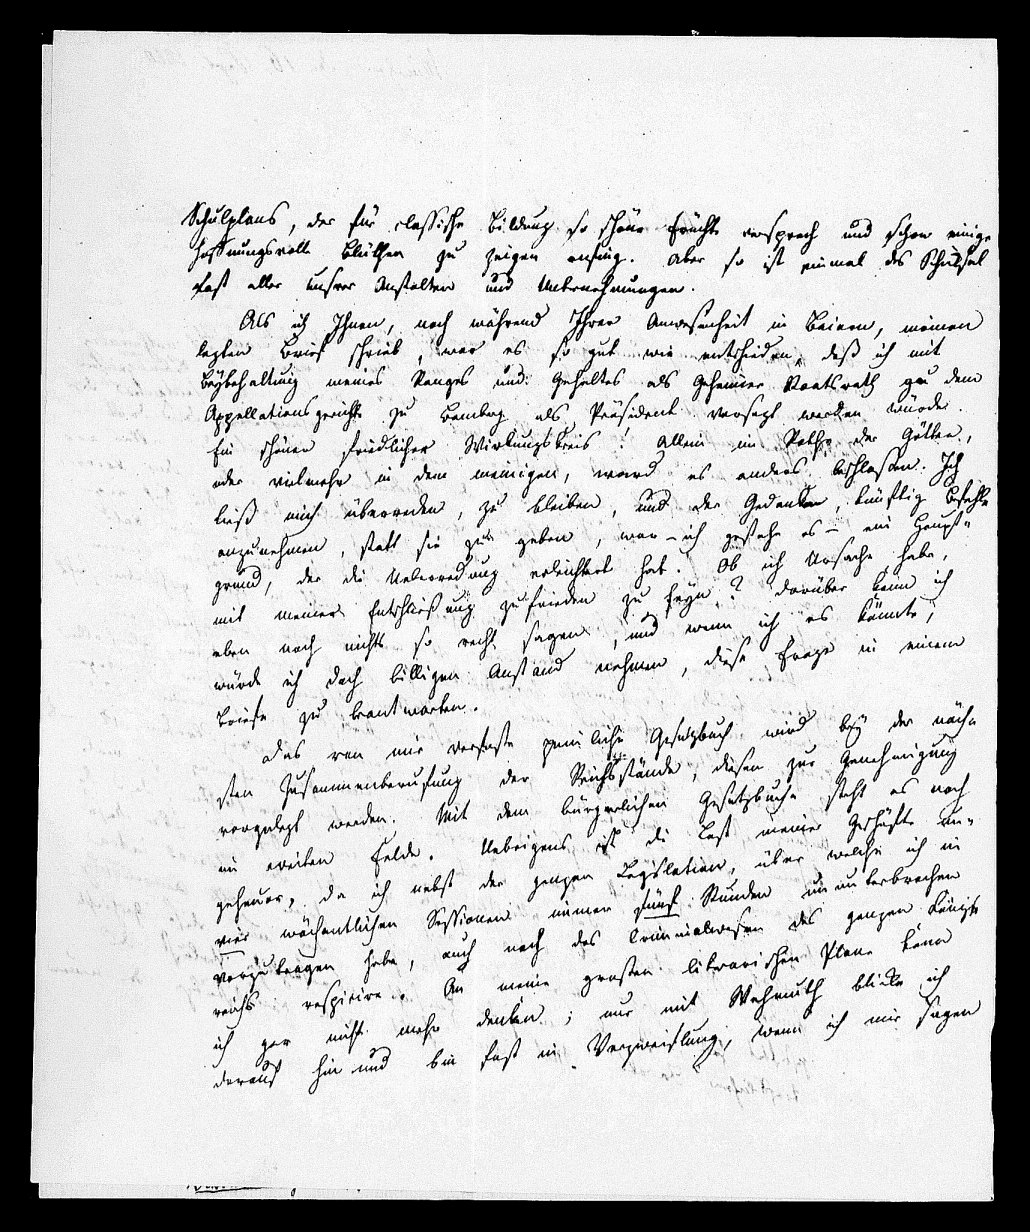 Schulplans, der für classische Bildung so schöne Früchte versprach und schon einige
hoffnungsvolle Blüthen zu zeigen anfing. Aber so ist einmal das Schicksal
fast aller unsrer Anstalten und Unternehmungen.
Als ich Ihnen, noch während Ihrer Anwesenheit in Baiern, meinen
letzten Brief schrieb, war es so gut wie entschieden, daß ich mit
Beybehaltung meines Ranges und Gehaltes als Geheimer Staatsrath zu dem
Appellationsgerichte zu Bamberg als Präsident versezt werden würde.
Ein schöner friedlicher Wirkungskreis! Allein im Rathe der Götter,
oder vielmehr in dem meinigen, ward es anders beschlossen. Ich
ließ mich überreden, zu bleiben, und der Gedanken, künftig Befehle
anzunehmen, statt sie zu geben, war – ich gestehe es – ein Haupt-
grund, der die Ueberredung erleichtert hat. Ob ich Ursache habe,
mit meiner Entschließung zufrieden zu seyn? darüber kann ich
eben noch nichts so recht sagen, und wenn ich es könnte,
würde ich doch billigen Anstand nehmen, diese Frage in einem
Briefe zu beantworten.
Das von mir verfaßte peinliche Gesetzbuch wird bey der näch-
sten Zusammenberufung der Reichsstände, diesen zur Genehmigung
vorgelegt werden. Mit dem bürgerlichen Gesetzbuche steht es noch
im weiten Felde. Uebrigens ist die Last meiner Geschäfte un-
geheuer, da ich nebst der ganzen Legislation, über welche ich in
vier wöchentlichen Sessionen immer fünf Stunden ununterbrochen
vorzutragen habe, auch noch das Criminalwesen des ganzen Königs-
reichs respicire. An meine großen literarischen Plane kann
ich gar nicht mehr denken; nur mit Wehmuth blicke ich
darauf hin und bin fast in Verzweiflung, wenn ich mir sagen